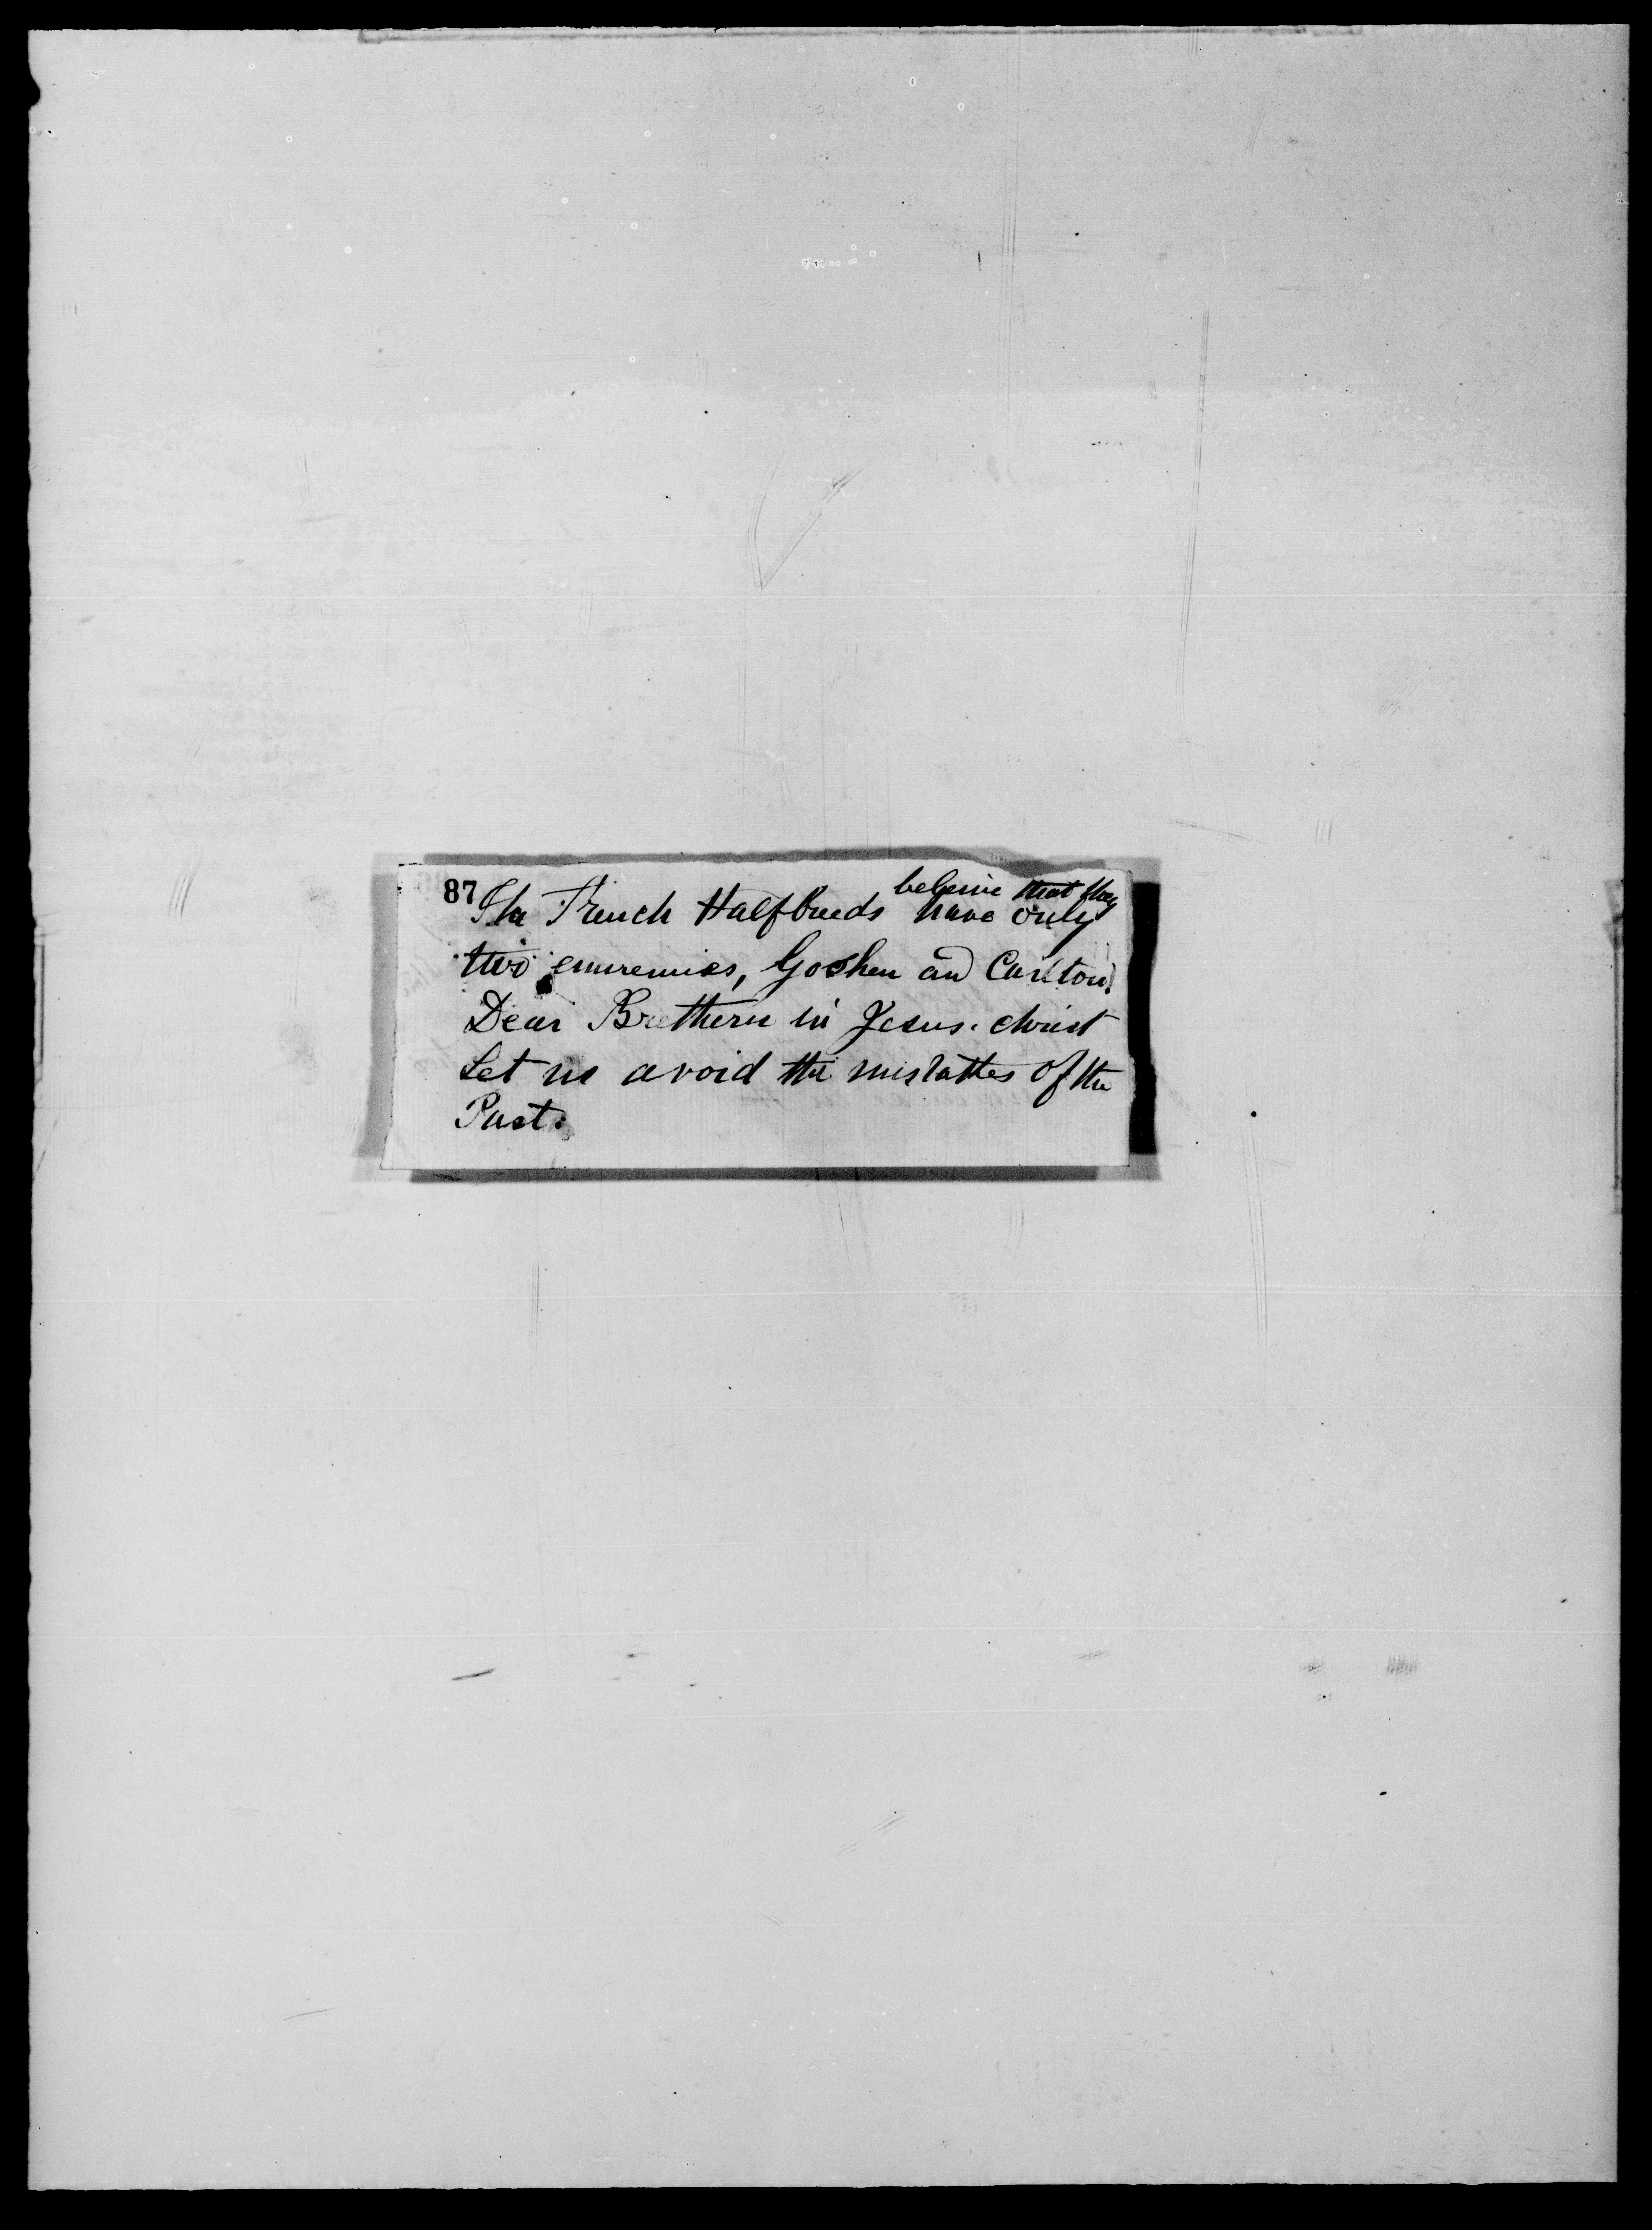 believe that they
87 The French Halfbreeds have only
two ennemies, Goshen and Carlton!
Dear Brethern in Jesus. christ
Let us avoid the mistakes of the
Past.